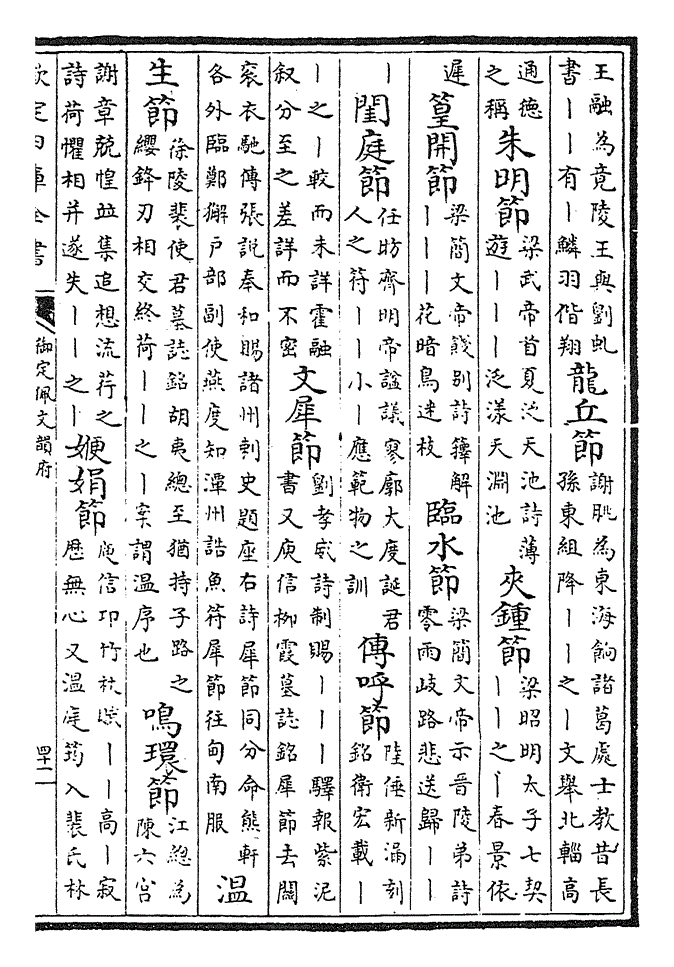 王融為竟陵王與劉虬
書丨丨有丨鱗羽偕翔
龍丘節
謝朓為東海餉諸葛處士教昔長
孫東組降丨丨之丨文舉北輜高
通德
之稱
朱明節
梁武帝首夏泛天池詩薄
遊丨丨丨泛漾天淵池
夾鍾節
梁昭明太子七契
丨丨之丨春景依
遲
篁開節
梁簡文帝餞别詩籜解
丨丨丨花暗鳥迷枝
臨水節
梁簡文帝示晋陵弟詩
零雨岐路悲送歸丨丨
丨
閨庭節
任昉齊明帝諡議寥廓大度誕君
人之符丨丨小丨應範物之訓
傳呼節
陸倕新漏刻
銘衛宏載丨
丨之丨較而未詳霍融
叙分至之差詳而不密
文犀節
劉孝威詩制賜丨丨丨驛報紫泥
書又庾信柳霞墓誌銘犀節去關
衮衣馳傳張說奉和賜諸州刺史題座右詩犀節同分命熊軒
各外臨鄭獬户部副使燕度知潭州誥魚符犀節往甸南服
温
生節
徐陵裴使君墓誌銘胡夷總至猶持子路之
纓鋒刃相交終荷丨丨之丨案謂温序也
鳴環節
江總為
陳六宫
謝章兢惶並集追想流荇之
詩荷懼相并遂失丨丨之丨
㛹娟節
庾信邛竹杖賦丨丨高丨寂
歴無心又温庭筠入裴氏林
欽定四庫全書
御定佩文韻府
四十二